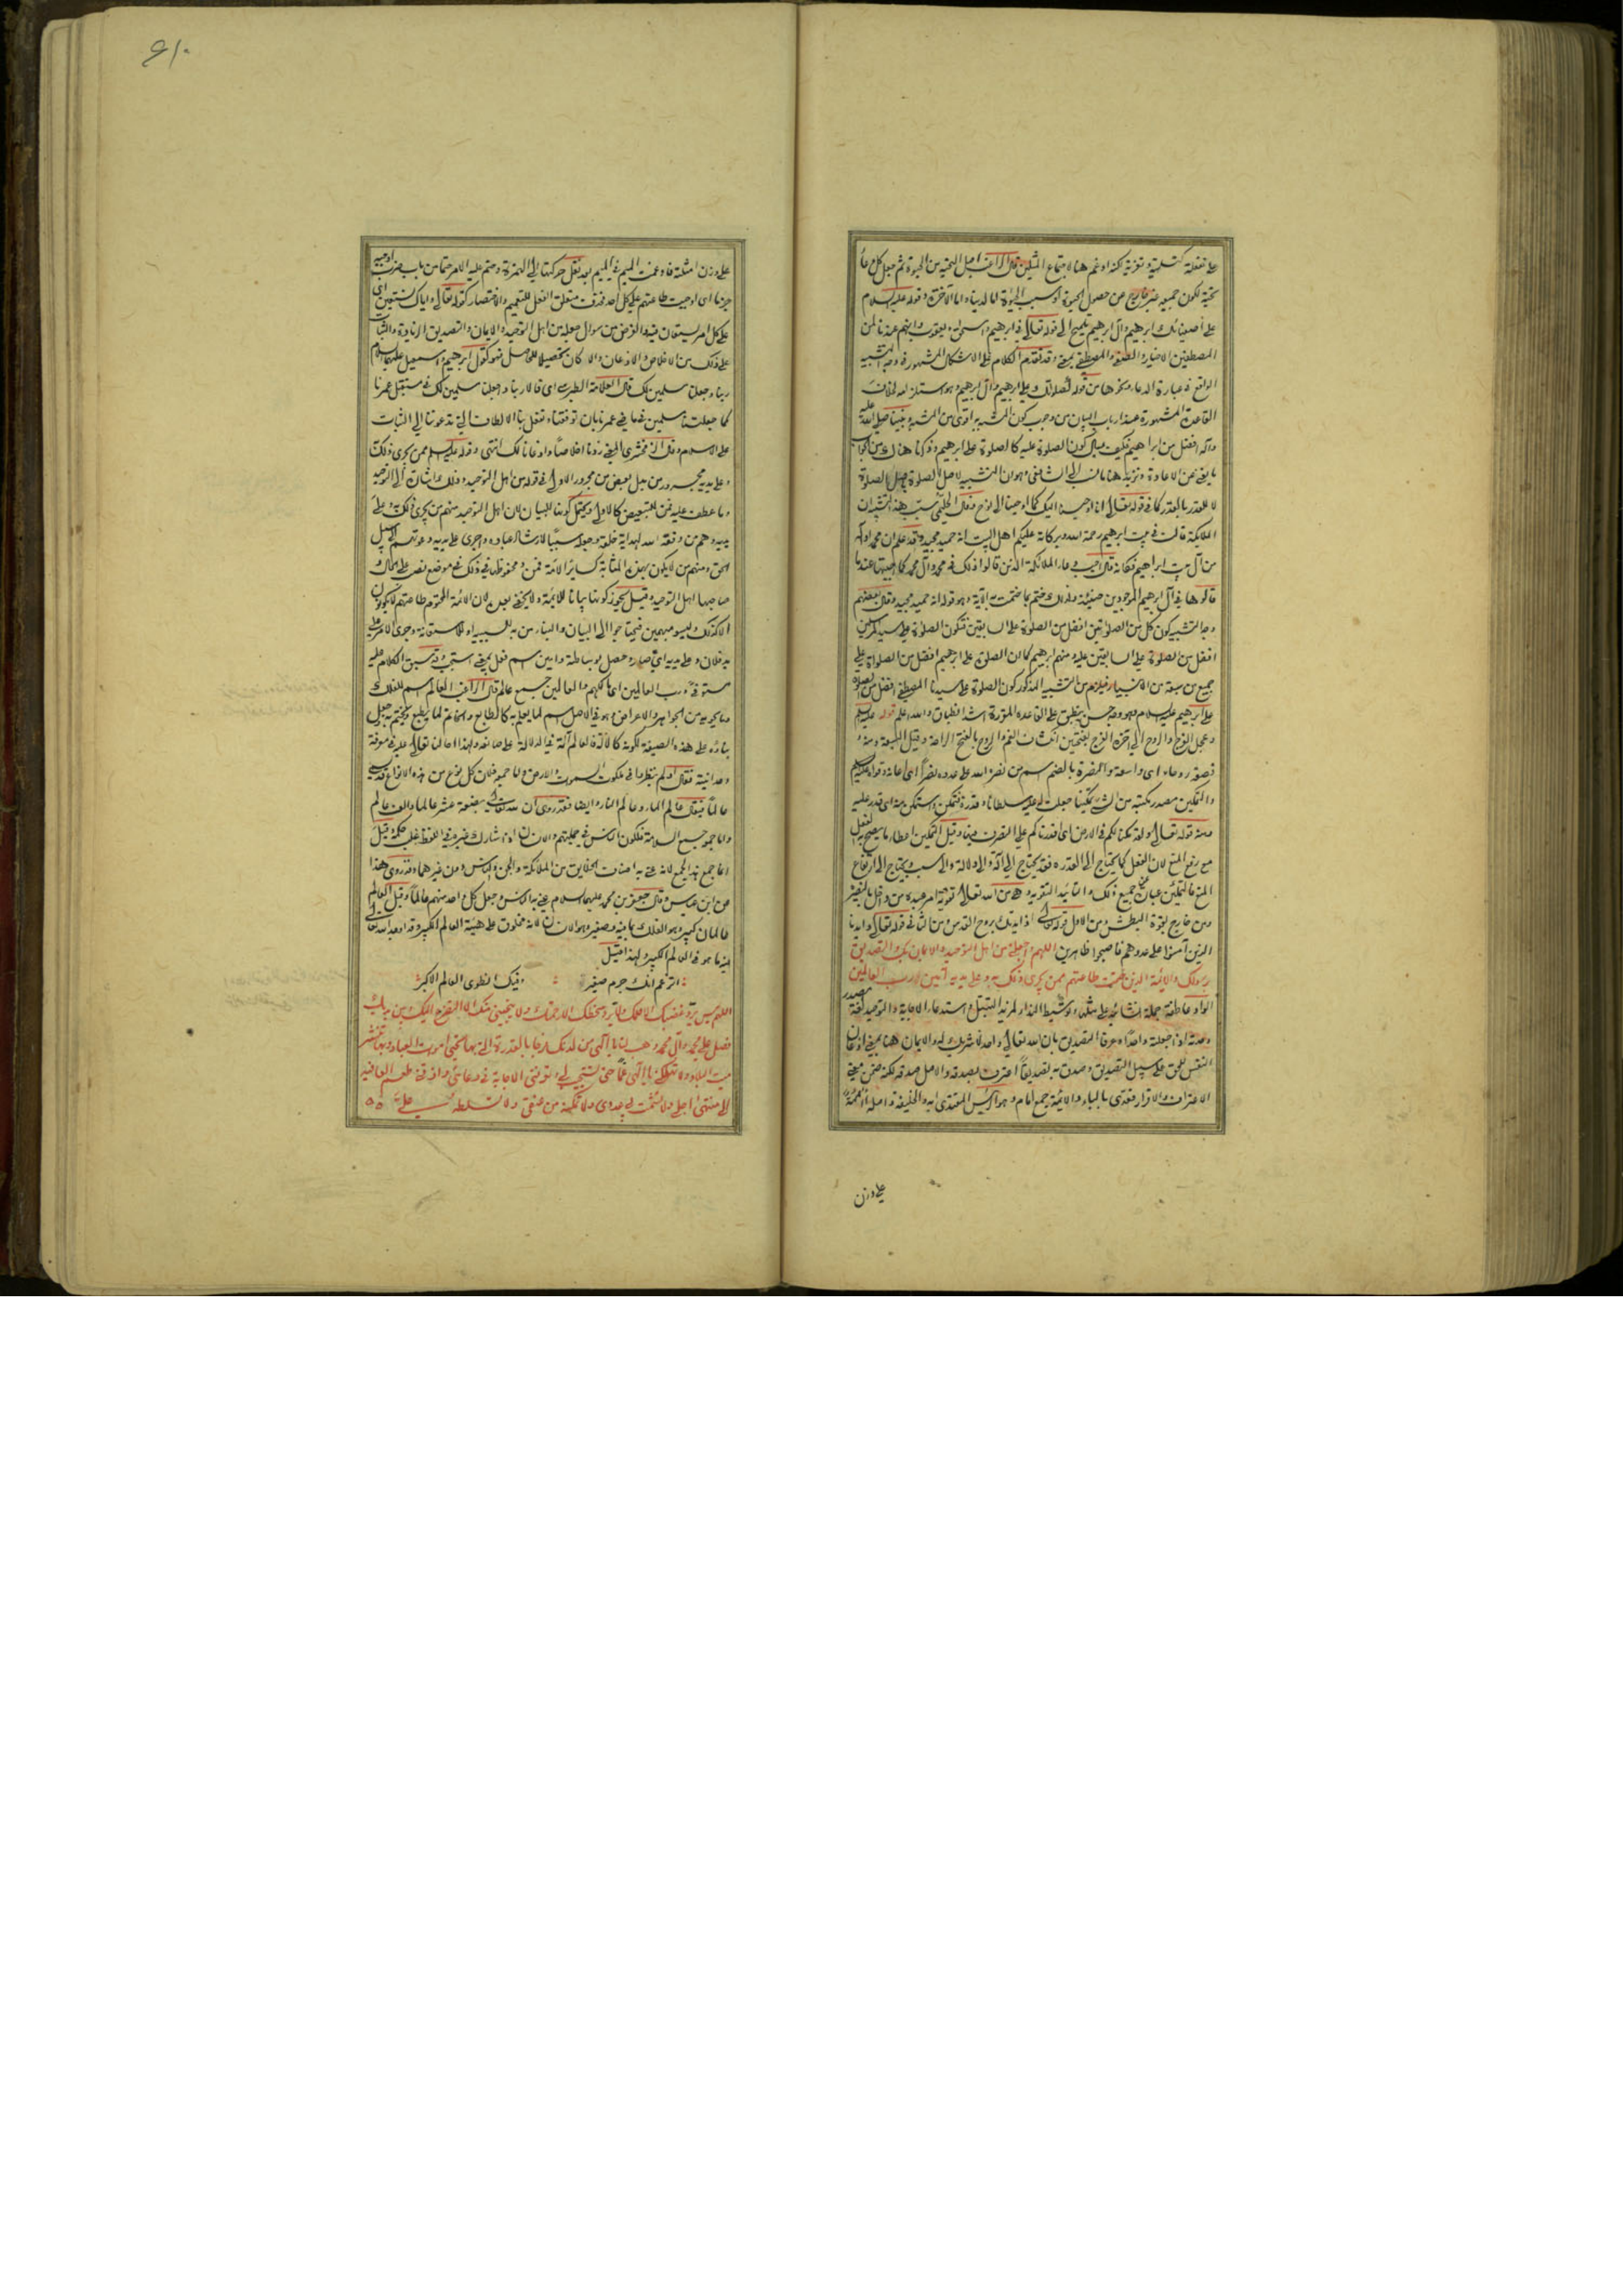 على تفعلة كتسلية وتعزية لكنه ادغم هنا لاجتماع المثلين قال الراغب اصل التحية من الحيوة ثم جعل كل دعاء
تحية لكون جميعه غير خارج عن حصول الحيوة او سبب الحيوة اما لدينا واما لآخرة وقوله عليه السلام
على أصفيائك ابراهيم وآل ابراهيم تلميح الى قوله تعالى في ابراهيم واسحق ويعقوب وانهم عندنا لمن
المصطفين الاخيار والصفى والمصطفى بمعنى وقد تقدم الكلام على الاشكال المشهور في وجه التشبيه
الواقع في عبارة الدعاء ونحوها من قوله كصلواتك على ابراهيم وآل ابراهيم وهو استلزامه لخلاف
القاعدة المشهورة عند ارباب البيان من وجوب كون المشبه به اقوى من المشبه ونبينا صلى الله عليه
وآله افضل من ابراهيم فكيف يسأل كون الصلوة عليه كالصلوة على ابراهيم وذكرنا هناك من الجواب
ما يغني عن الاعادة ونزيد هنا ما نسب الى الشافعى وهو ان التشبيه لاصل الصلوة باصل الصلوة
لا للقدر بالقدر كما في قوله تعالى انا اوحينا اليك كما اوحينا الى نوح وقال الحليمى سبب هذا التشبيه ان
الملائكة قالت في بيت ابراهيم رحمة الله وبركاته عليكم اهل البيت انه حميد مجيد وقد علم ان محمدا وآله
من آل بيت ابراهيم فكانه قال اجب دعاء الملائكة الذين قالوا ذلك في محمد وآل محمد كما اجبتها عندما
قالوها في آل ابراهيم الموجودين حينئذ ولذلك ختم بما ختمت به الآية وهو قوله انه حميد مجيد وقال بعضهم
وجه التشبيه كون كل من الصلوتين افضل من الصلوة على السابقين فتكون الصلوة على سيد المرسلين
افضل من الصلوة على السابقين عليه ومنهم ابراهيم كما ان الصلوة على ابراهيم افضل من الصلوة على
جميع من سبقه من الانبياء فيلزم من التشبيه المذكور كون الصلوة على سيدنا المصطفى افضل من الصلوة
على ابراهيم عليه السلام وهو وجه حسن ينطبق على القاعدة المقررة اشد انطباق والله اعلم قوله عليه السلام
وعجل الفرج والروح الى آخره الفرج بفتحتين انكشاف الغم والروح بالفتح الراحة وقيل السعة ومنه
قصعة روحاء اى واسعة والنصرة بالضم اسم من نصره الله على عدوه نصراً اى اعانه وقواه عليه
والتمكين مصدر مكنته من الشئ تمكينا جعلت له عليه سلطانا وقدرة فتمكن واستمكن منه اى قدر عليه
ومنه قوله تعالى ولقد مكناكم في الارض اى اقدرناكم على التصرف فيها وقيل التمكين اعطاء ما يصح به الفعل
مع رفع المنع لان الفعل كما يحتاج الى القدرة فقد يحتاج الى آلة والى دلالة والى سبب ويحتاج الى ارتفاع
المنع فالتمكين عبارة عن جميع ذلك والتأييد التقوية وهو من الله تعالى تقوية امر عبده من داخل بالبصيرة
ومن خارج بقوة البطش ومن الاول قوله تعالى اذ ايدتك بروح القدس ومن الثانى قوله تعالى وايدنا
الذين آمنوا على عدوهم فاصبحوا ظاهرين اللهم واجعلنى من اهل التوحيد والايمان بك والتصديق
برسولك والائمة الذين حتمت طاعتهم ممن يجرى ذلك به وعلى يديه آمين رب العالمين
الواو عاطفة جملة انشائية على مثلها وتوسيط النداء لمزيد التبتل واستدعاء الاجابة والتوحيد لغة مصدر
وحدته اذا جعلته واحداً وعرفا التصديق بان الله تعالى واحد لا شريك له والايمان هنا بمعنى اذعان
النفس للحق على سبيل التصديق وصدق به تصديقاً اعترف بصدقه والاصل صدقه لكنه ضمن معنى
الاعتراف والاقرار فعدى بالباء والائمة جمع امام وهو الرئيس المقتدى به والخليفة واصله أأممة
على وزن
على وزن امثلة فادغمت الميم في الميم بعد نقل حركتها الى الهمزة وحتم عليه الامر حتما من باب ضرب اوجبه
جزما اى اوجبت طاعتهم على كل احد فحذف متعلق الفعل للتعميم والاختصار كقوله تعالى واياك نستعين اى
على كل امر يستعان فيه والغرض من سوال جعله من اهل التوحيد والايمان والتصديق الزيادة والثبات
على ذلك من الاخلاص والاذعان والا كان تحصيلا للحاصل فهو كقول ابراهيم واسمعيل عليهما السلام
ربنا واجعلنا مسلمين لك قال العلامة الطبرسى اى قالا ربنا واجعلنا مسلمين لك في مستقبل عمرنا
كما جعلتنا مسلمين في ماضى عمرنا بان توفقنا وتفعل بنا الالطاف التى تدعونا الى الثبات
على الاسلام وقال الزمخشرى المعنى زدنا اخلاصاً واذعانا لك انتهى وقوله عليه السلام ممن يجرى ذلك
وعلى يديه مجرور من بدل بعض من مجرور الاولى في قوله من اهل التوحيد وذلك اشارة الى التوحيد
وما عطف عليه فمن للتبعيض كالاولى ويحتمل كونها للبيان لان اهل التوحيد منهم من يجرى ذلك به وعلى
يديه وهم من وفقه الله لهداية خلقه وجعله سبباً لارشاد عباده واجرى على يديه دعوتهم الى سبيل
الحق ومنهم من لا يكون بهذه المثابة كسائر الامة فمن ومخفوظها في ذلك في موضع نصب على الحال و
صاحبها اهل التوحيد وقيل يجوز كونها بيانا للائمة ولا يخفى بعده لان الائمة المحتوم طاعتهم لا يكونون
الا كذلك وليسوا مبهمين فيحتاجوا الى البيان والباء من به للسببية او للاستعانة وجرى الامر على
يد فلان وعلى يديه اى صدر وحصل بوساطته وآمين اسم فعل بمعنى استجب وقد سبق الكلام عليه
مستوفى ورب العالمين اى مالكهم والعالمين جمع عالم قال الراغب العالم اسم للفلك
وما يحويه من الجواهر والاعراض وهو في الاصل اسم لما يعلم به كالطابع والخاتم لما يطبع ويختم به وجعل
بناؤه على هذه الصيغة لكونه كالآلة فالعالم آلة في الدلالة على صانعه ولهذا احالنا تعالى عليه في معرفة
وحدانيته فقال اولم ينظروا في ملكوت السموات والارض واما جمعه فلان كل نوع من هذه الانواع قد يسمى
عالماً فيقال عالم الماء وعالم النار وايضا فقد روى ان لله تعالى بضعة عشر عالما والف عالم
واما جمعه جمع السلامة فلكون الناس في جملتهم والانسان اذا شارك غيره في اللفظ غلب حكمه وقيل
انما جمع هذا الجمع لانه عنى به اصناف الخلايق من الملائكة والجن والناس دون غيرهم وقد روى هذا
عن ابن عباس وقال جعفر بن محمد عليهما السلام عنى به الناس وجعل كل واحد منهم عالماً وقيل العالم
عالمان كبير وهو الفلك بما فيه وصغير وهو الانسان لانه مخلوق على هيئة العالم الكبير وقد اوجد الله تعالى
فيه ما هو في العالم الكبير ولهذا قيل
اتزعم انك جرم صغير وفيك انطوى العالم الاكبر
اللهم ليس يرد غضبك الا حلمك ولا يرد سخطك الا رحمتك ولا ينجينى منك الا التضرع اليك وبين يديك
فصل على محمد وآل محمد وهب لنا يا الهى من لدنك فرجا بالقدرة التى بها تحيى اموات العباد وبها تنشر
ميت البلاد ولا تهلكنى يا الهى غماً حتى تستجيب لى وتعرفنى الاجابة في دعائى واذقنى طعم العافية
الى منتهى اجلى ولا تشمت بى عدوى ولا تمكنه من عنقى ولا تسلطه على